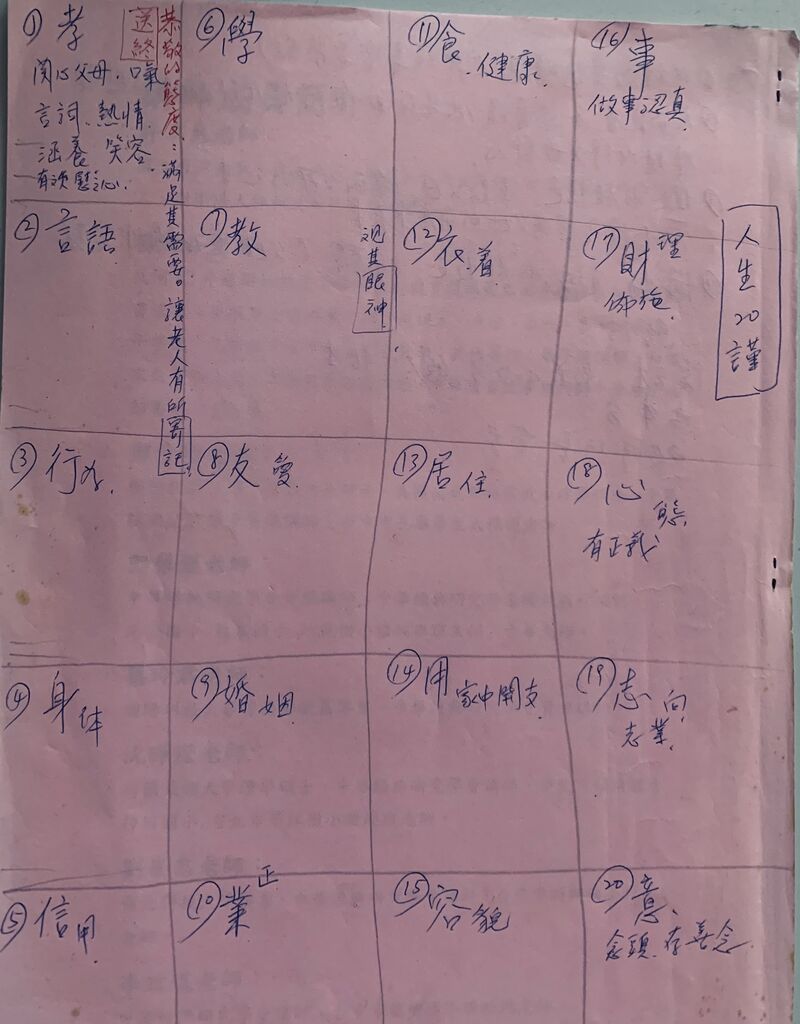 ① 孝
關心父母、口氣
言詞、熱情
涵養 笑容
有效慰心.
送終
恭敬的態度：滿足其需要。讓老人有所寄託
② 言語
③ 行為.
④ 身体
⑤ 信用
⑥ 學
⑦ 教
觀其眼神
⑧ 友愛
⑨ 婚姻
⑩ 正業
⑪ 食、健康.
⑫ 衣着
⑬ 居住.
⑭ 用 家中開支.
⑮ 容貌
⑯ 事
做事認真
⑰ 財理
佈施.
⑱ 心態
有正義
⑲ 志向
志業
⑳ 意、
念頭.存善念.
人生20謹